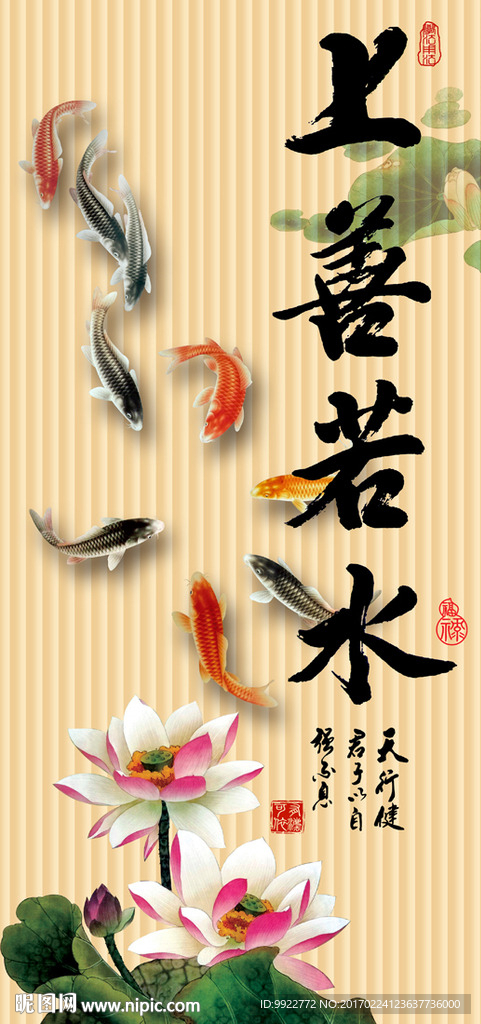 上善若水
天行健
君子以自
强不息
昵图网 www.nipic.com
ID:9922772 NO:20170224123637736000